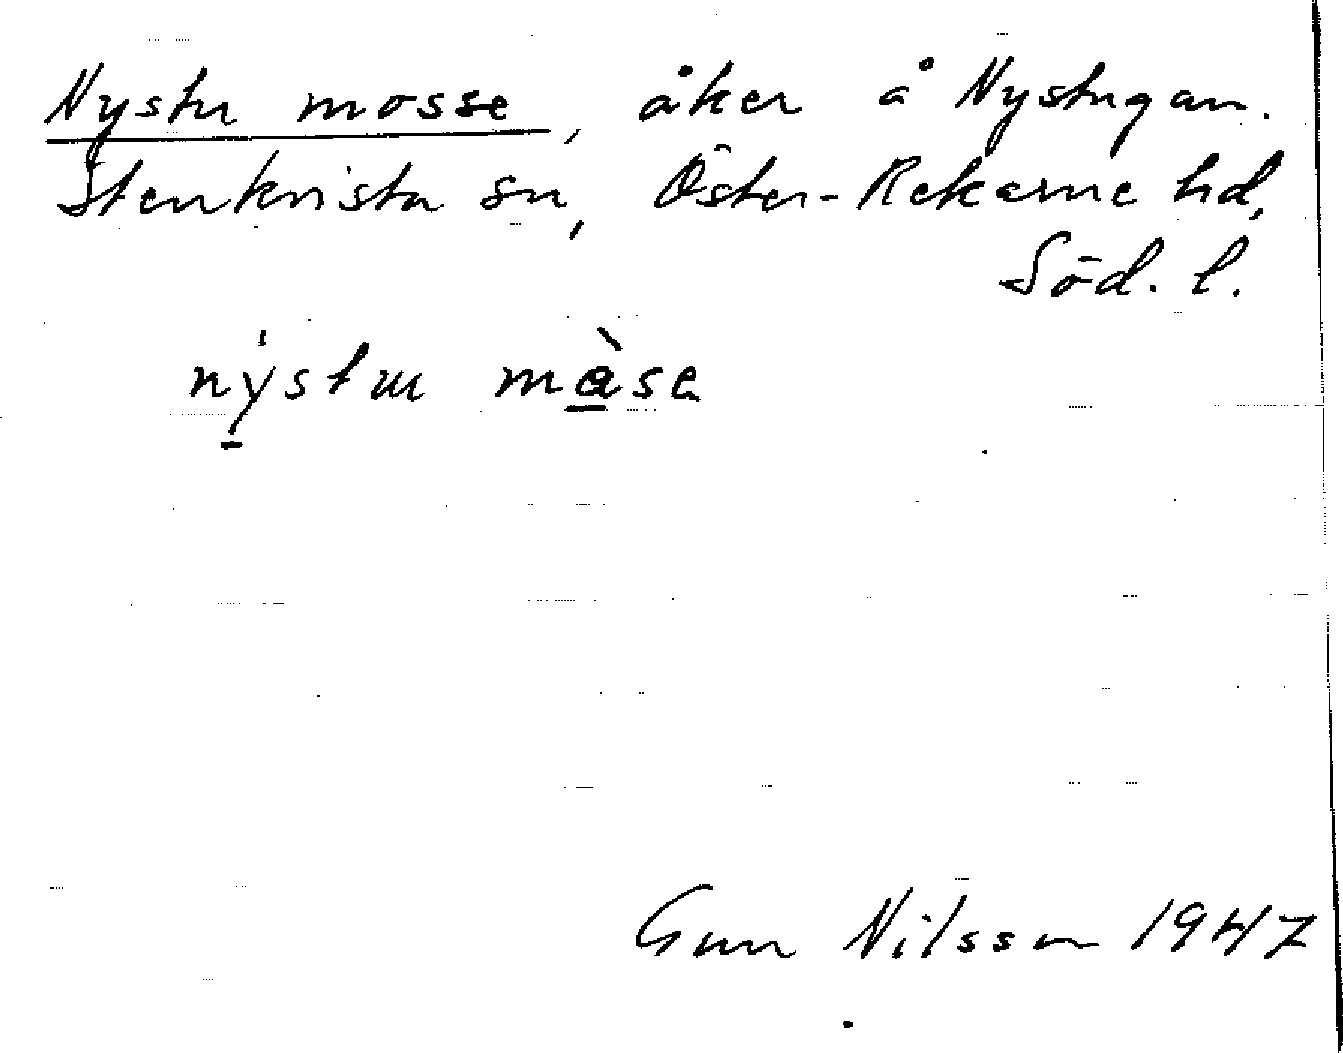 Nystu mosse, åker å Nystugan.
Stenkvista sn, Öster-Rekarne hd,
Söd. l.
nýstɯ màsa
Gun Nilsson 1947